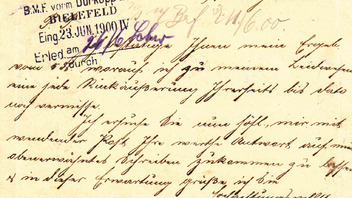 B.M.F. vorm Dürkopp
BIELEFELD
Eing. 23. JUN. 1900 IV
Erled. am 26/6
durch
Ihnen meine Ergeb.
vom worauf ich zu meinem Leidwesen
eine jede Rückäußerung Ihrerseits bis dato
noch vermisse.
Ich ersuche Sie nun höfl., mir mit
wendender Post, Ihre werthe Antwort auf mein
obenerwähntes Schreiben zukommen zu lassen
& in dieser Erwartung grüße ich Sie